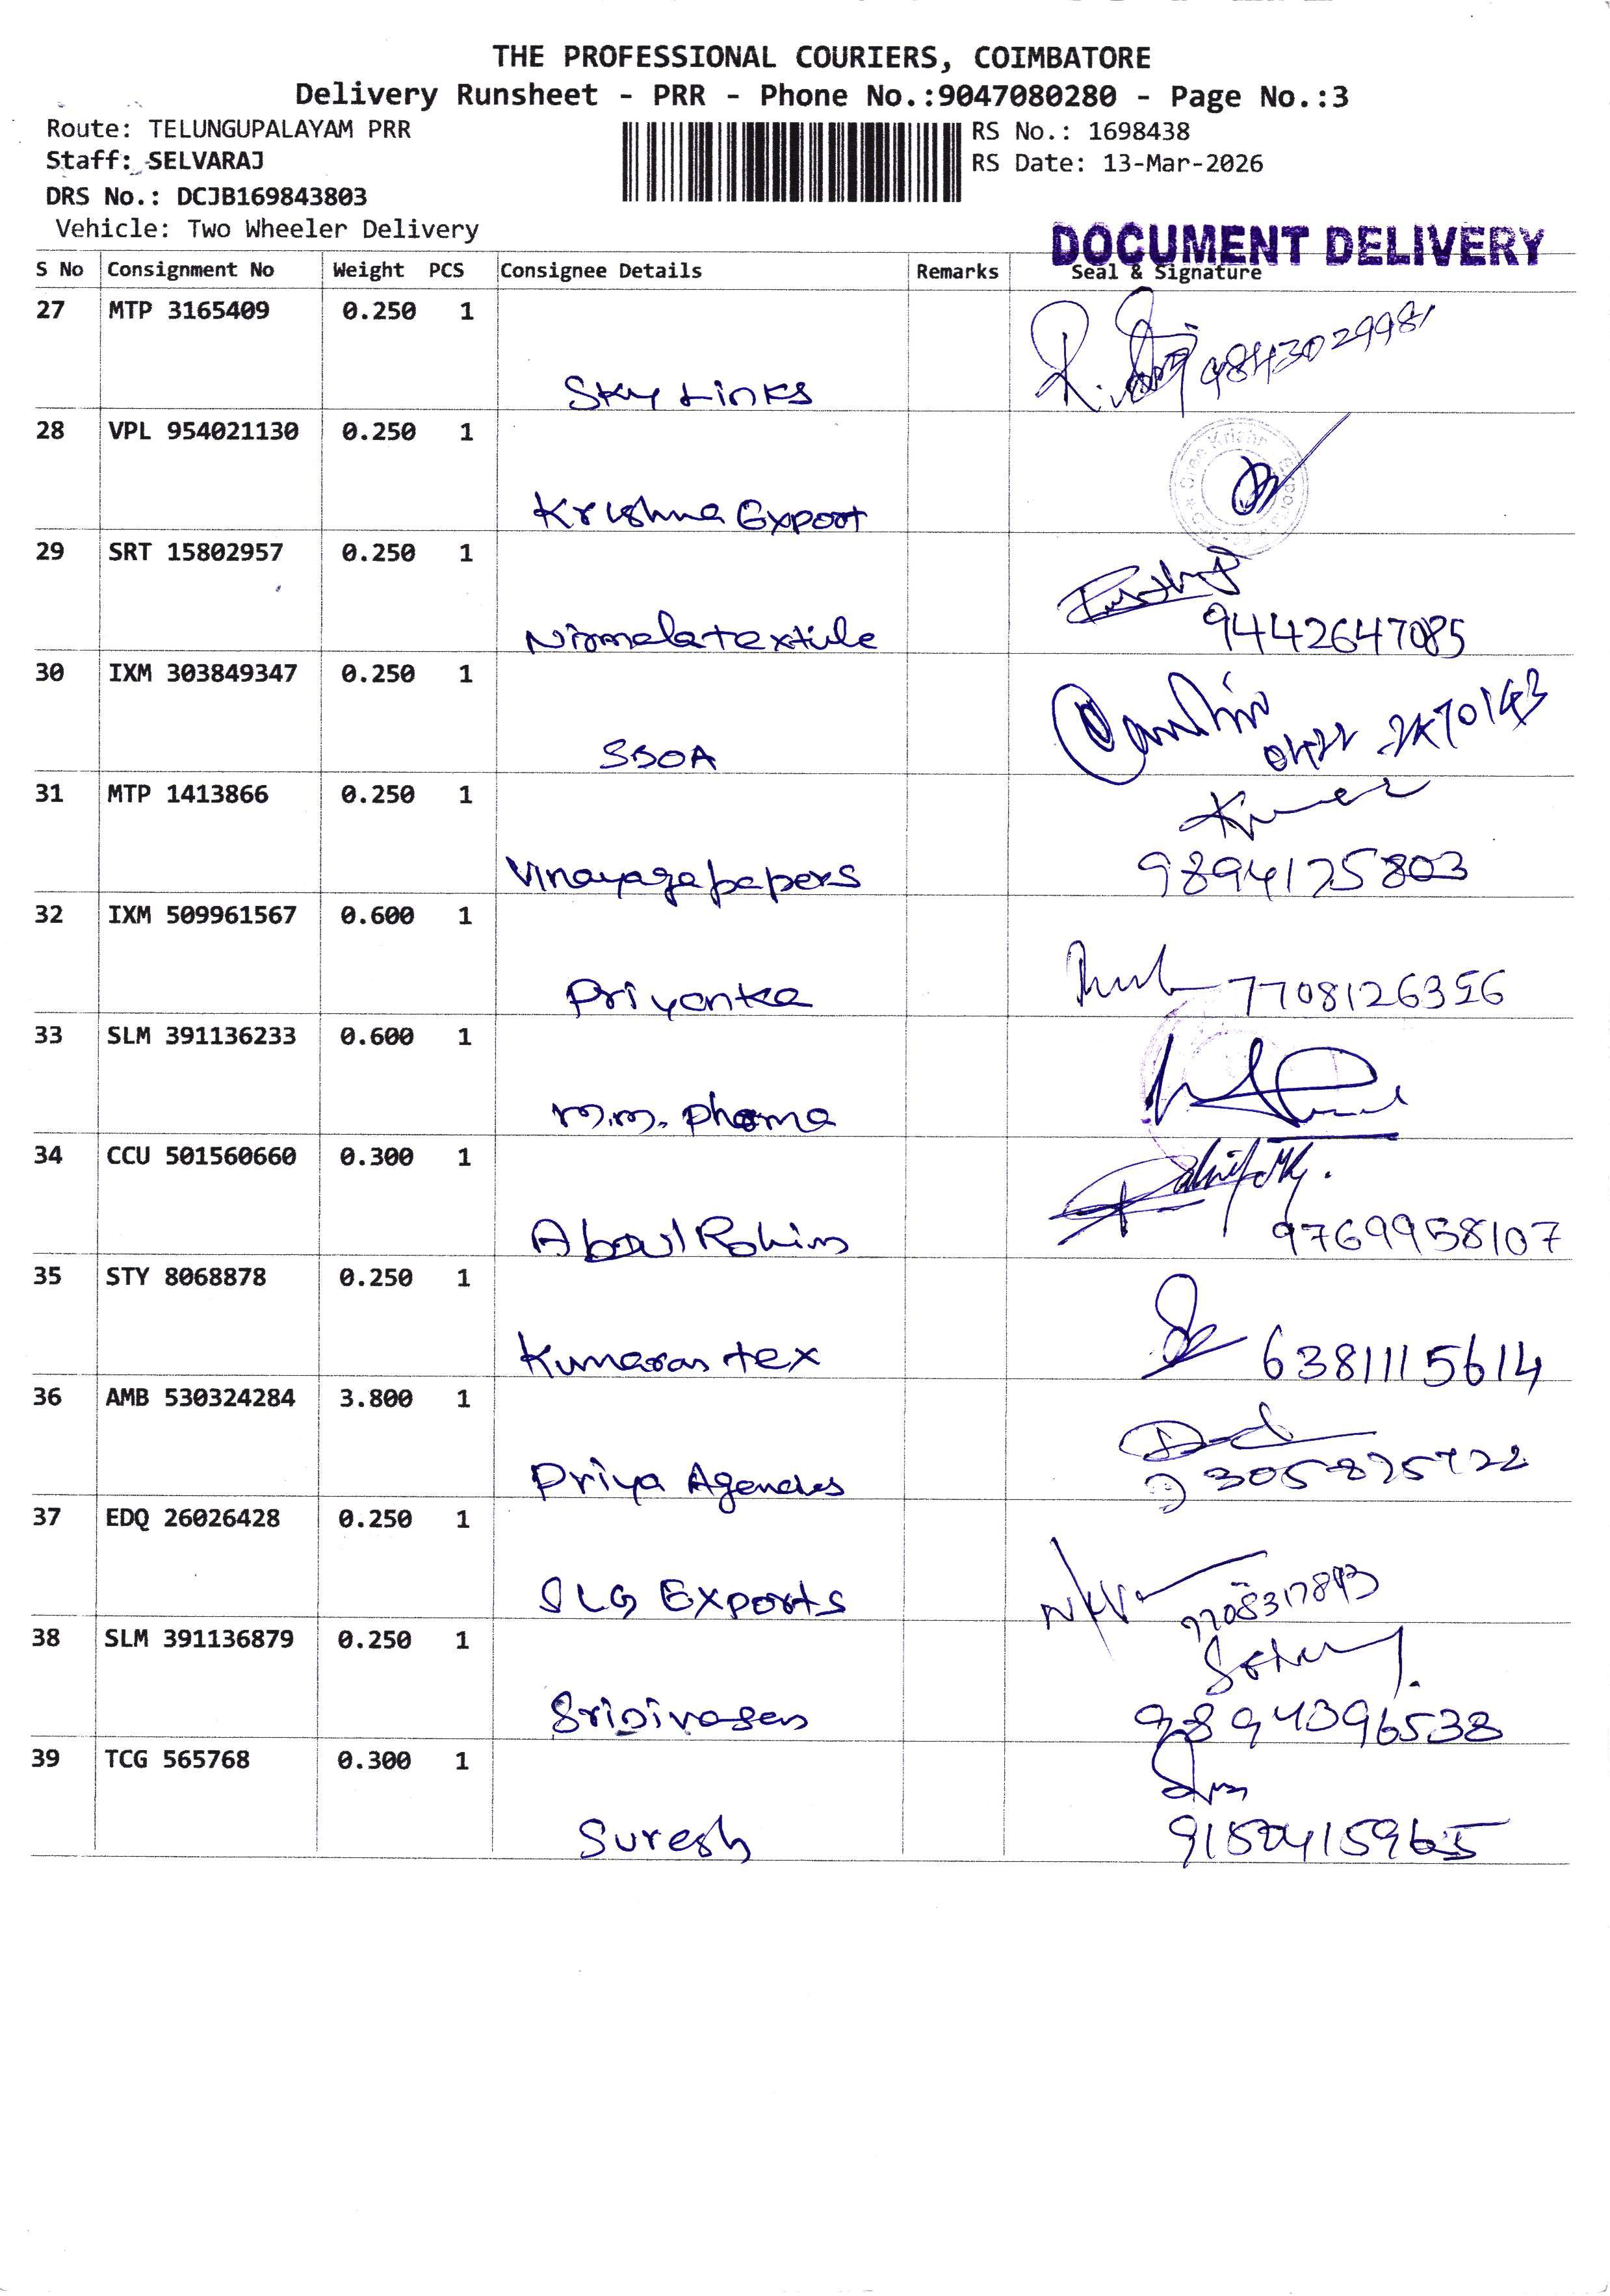 THE PROFESSIONAL COURIERS, COIMBATORE
Delivery Runsheet - PRR - Phone No.:9047080280 - Page No.:3
Route: TELUNGUPALAYAM PRR
RS No.: 1698438
Staff: SELVARAJ
RS Date: 13-Mar-2026
DRS No.: DCJB169843803
Vehicle: Two Wheeler Delivery
DOCUMENT DELIVERY
S No Consignment No Weight PCS Consignee Details Remarks Seal & Signature
27 MTP 3165409 0.250 1
Sky Links 9843029981
28 VPL 954021130 0.250 1
Krishna Export
29 SRT 15802957 0.250 1
Nirmala textile 9442647085
30 IXM 303849347 0.250 1
SBOA
31 MTP 1413866 0.250 1
Kumar
Vinayaga papers 9894125803
32 IXM 509961567 0.600 1
Priyanka 7708126356
33 SLM 391136233 0.600 1
M.M. Pharma
34 CCU 501560660 0.300 1
Abdul Rahim 9769958107
35 STY 8068878 0.250 1
Kumaran tex 6381115614
36 AMB 530324284 3.800 1
Priya Agencies
37 EDQ 26026428 0.250 1
SLG Exports 7708317893
38 SLM 391136879 0.250 1
Srinivasan 9894396538
39 TCG 565768 0.300 1
Suresh 9150415965